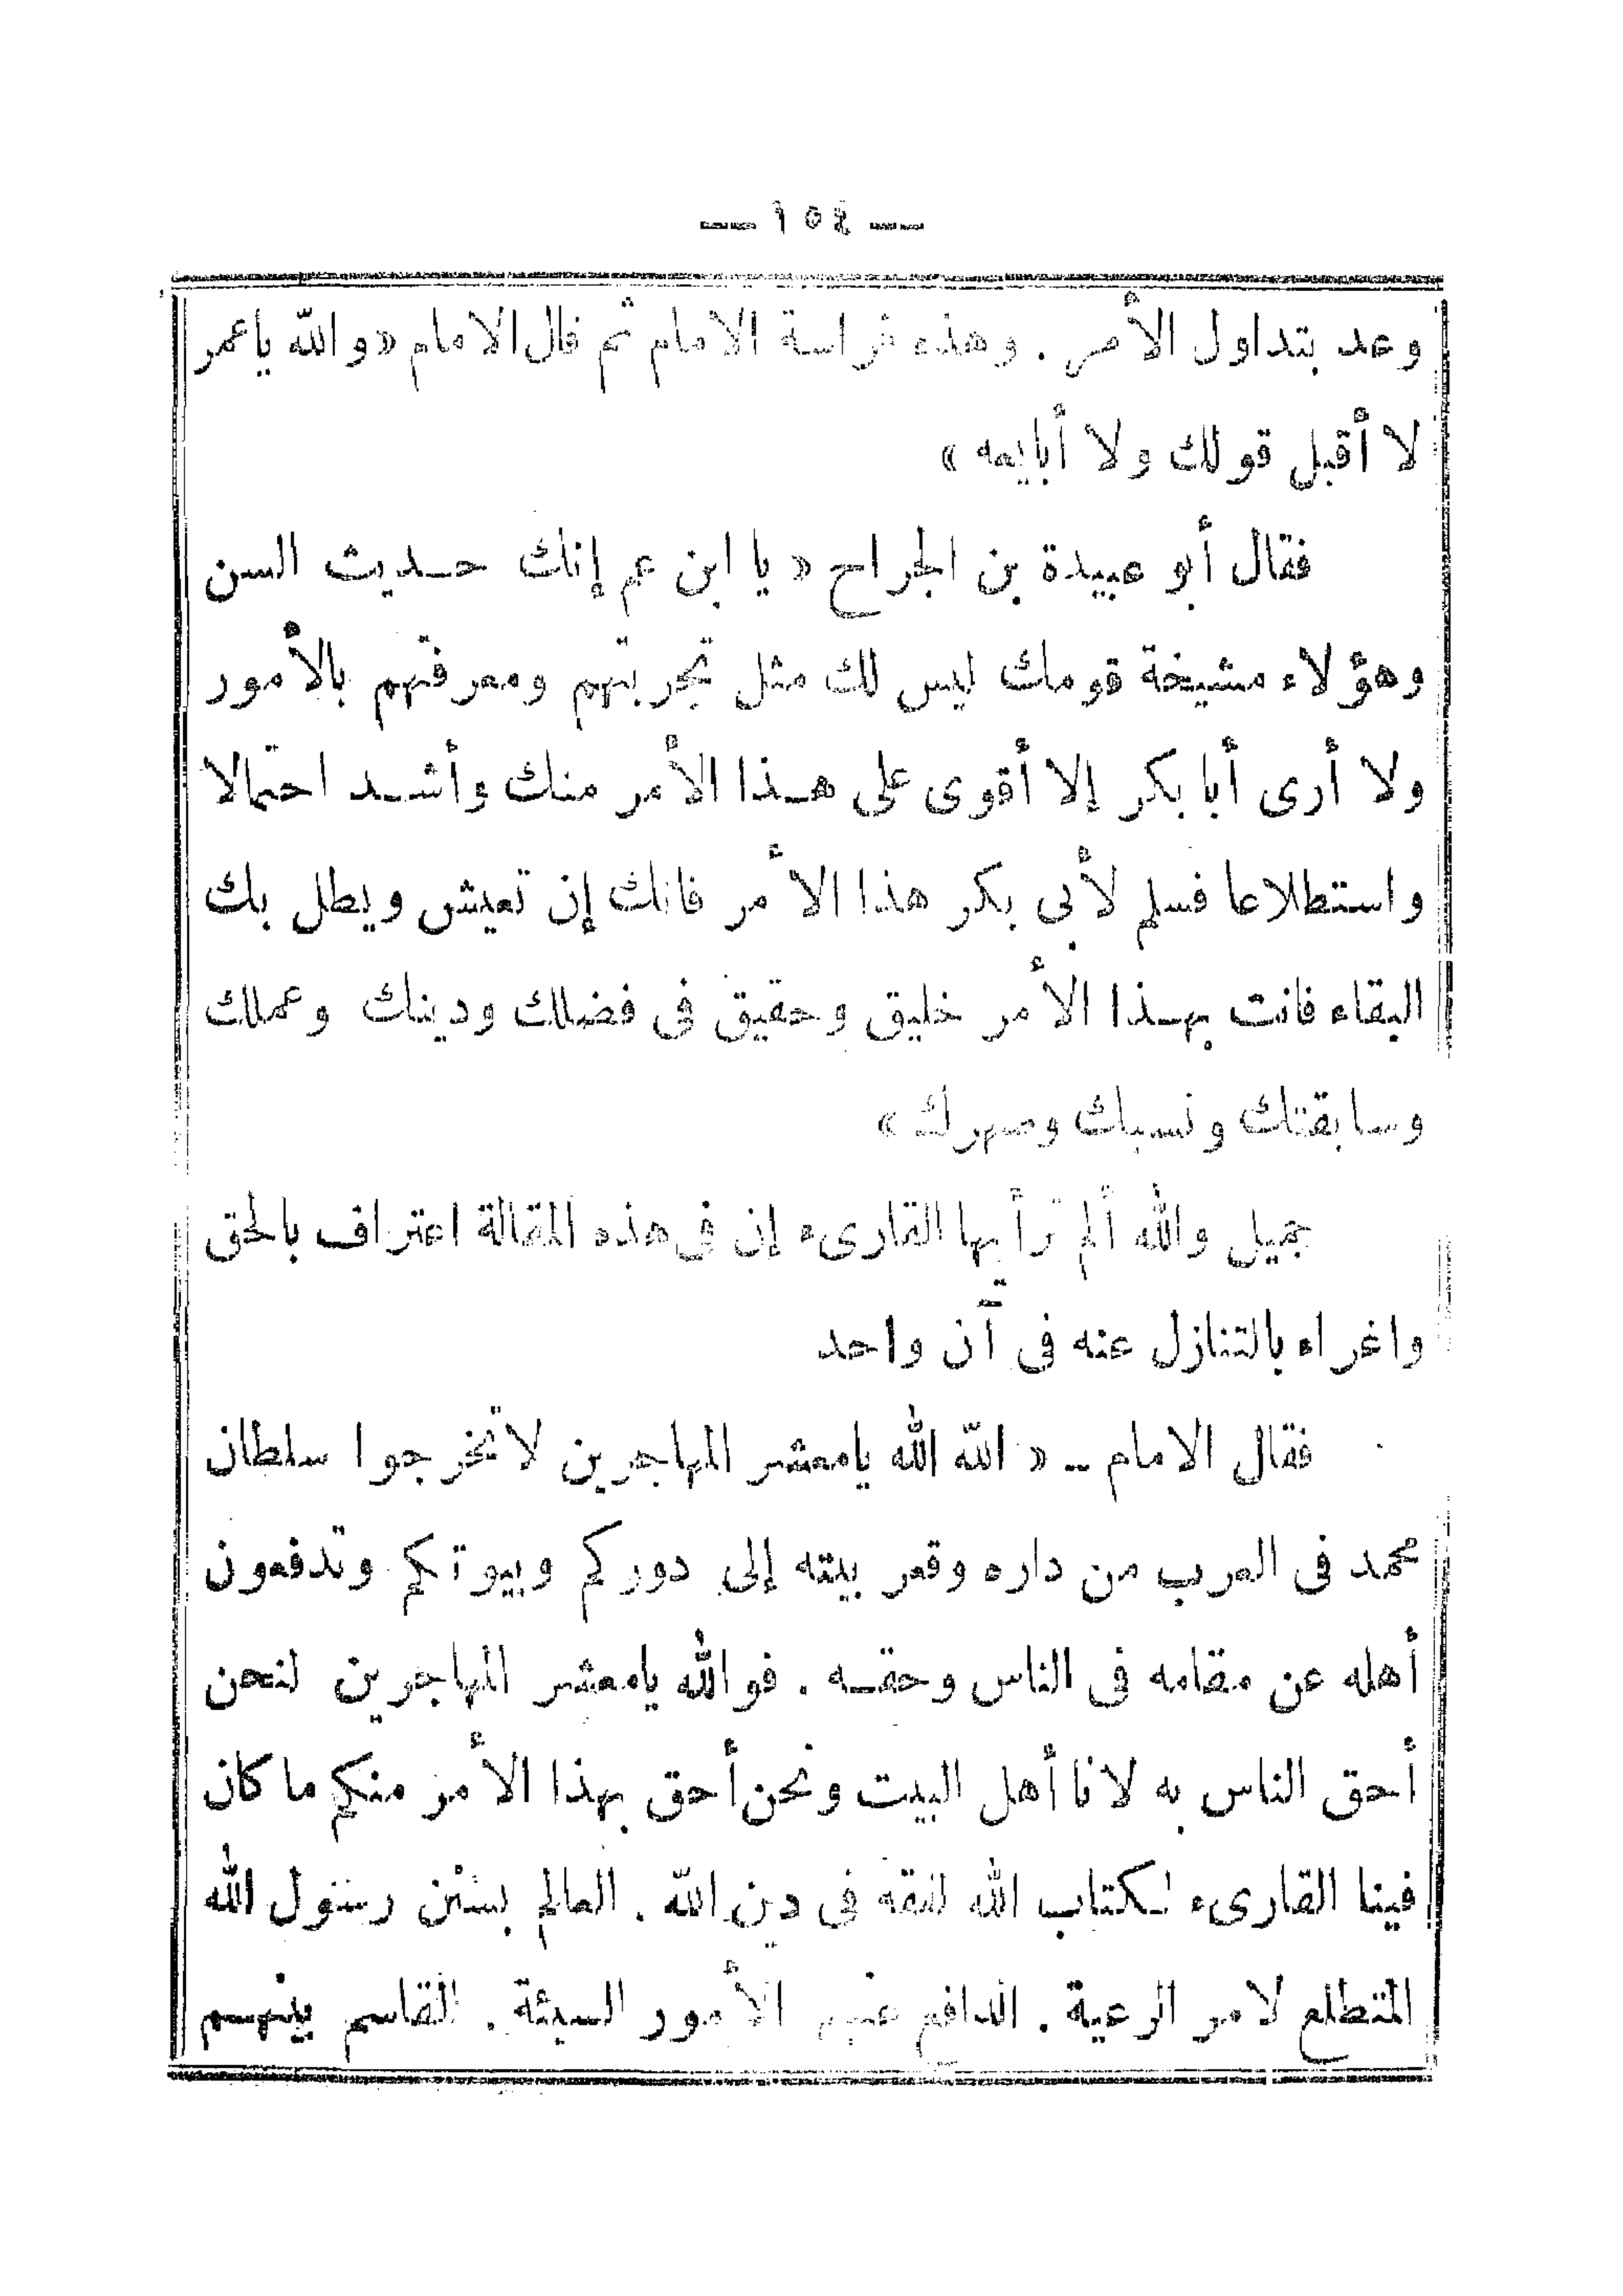 — ١٥٤ —
وعد بتداول الأمر . وهذه فراسة الامام ثم قال الامام « والله ياعمر
لا أقبل قولك ولا أبايعه »
فقال أبو عبيدة بن الجراح « يا ابن عم إنك حديث السن
وهؤلاء مشيخة قومك ليس لك مثل تجربتهم ومعرفتهم بالأمور
ولا أرى أبا بكر إلا أقوى على هذا الأمر منك وأشد احتمالا
واستطلاعا فسلم لأبى بكر هذا الأمر فانك إن تعيش ويطل بك
البقاء فانت بهذا الأمر خليق وحقيق فى فضلك ودينك وعملك
وسابقتك ونسبك وصهرك »
جميل والله ألم تر أيها القارىء إن فى هذه المقالة اعتراف بالحق
واغراء بالتنازل عنه فى آن واحد
فقال الامام — « الله الله يامعشر المهاجرين لاتخرجوا سلطان
محمد فى العرب من داره وقعر بيته إلى دوركم وبيوتكم وتدفعون
أهله عن مقامه فى الناس وحقه . فوالله يامعشر المهاجرين لنحن
أحق الناس به لانا أهل البيت ونحن أحق بهذا الأمر منكم ما كان
فينا القارىء لكتاب الله لفقه فى دين الله . العالم بسنن رسول الله
المتطلع لامر الرعية . الدافع عنهم الأمور السيئة . القاسم بينهم